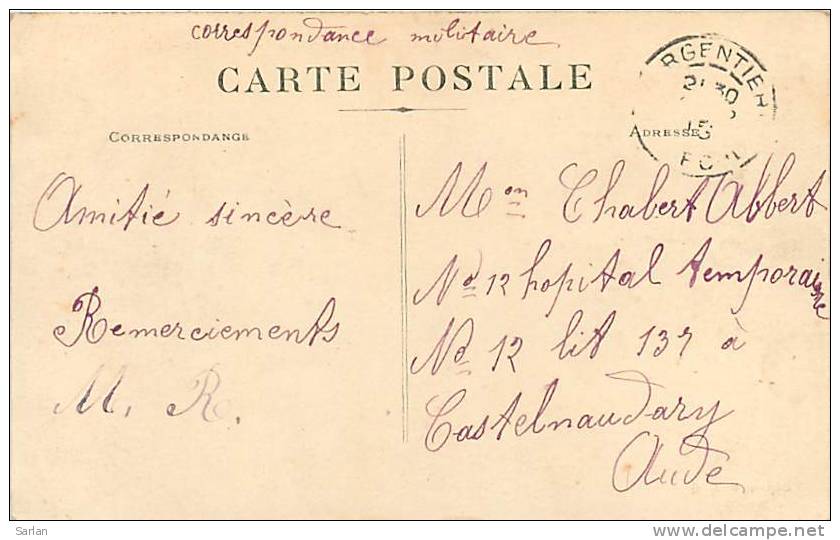 correspondance militaire
CARTE POSTALE
RGENTIER
21 30
15
CORRESPONDANCE
ADRESSE
Amitié sincère
Remerciements
M. R.
Mon Chabert Albert
No 12 hopital temporaire
No 12 lit 137 à
Castelnaudary
Aude
Sarlan
www.delcampe.net